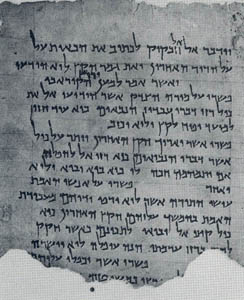 וידבר אל אל חבקוק לכתוב את הבאות על
על הדור האחרון ואת גמר הקץ לוא הודעו
ואשר אמר למען ירוץ הקורא בו
פשרו על מורה הצדק אשר הודיעו אל את
כול רזי דברי עבדיו הנבאים כיא עוד חזון
למועד יפיח לקץ ולוא יכזב
פשרו אשר יארוך הקץ האחרון ויתר על כול
אשר דברו הנביאים כיא רזי אל להפלה
אם יתמהמה חכה לו כיא בוא יבוא ולוא
יאחר פשרו על אנשי האמת
עושי התורה אשר לוא ירפו ידיהם מעבודת
האמת בהמשך עליהם הקץ האחרון כיא
כול קיצי אל יבואו לתכונם כאשר חקק
להם ברזי ערמתו הנה עופלה לוא יושרה
פשרו אשר יכפלו עליהם